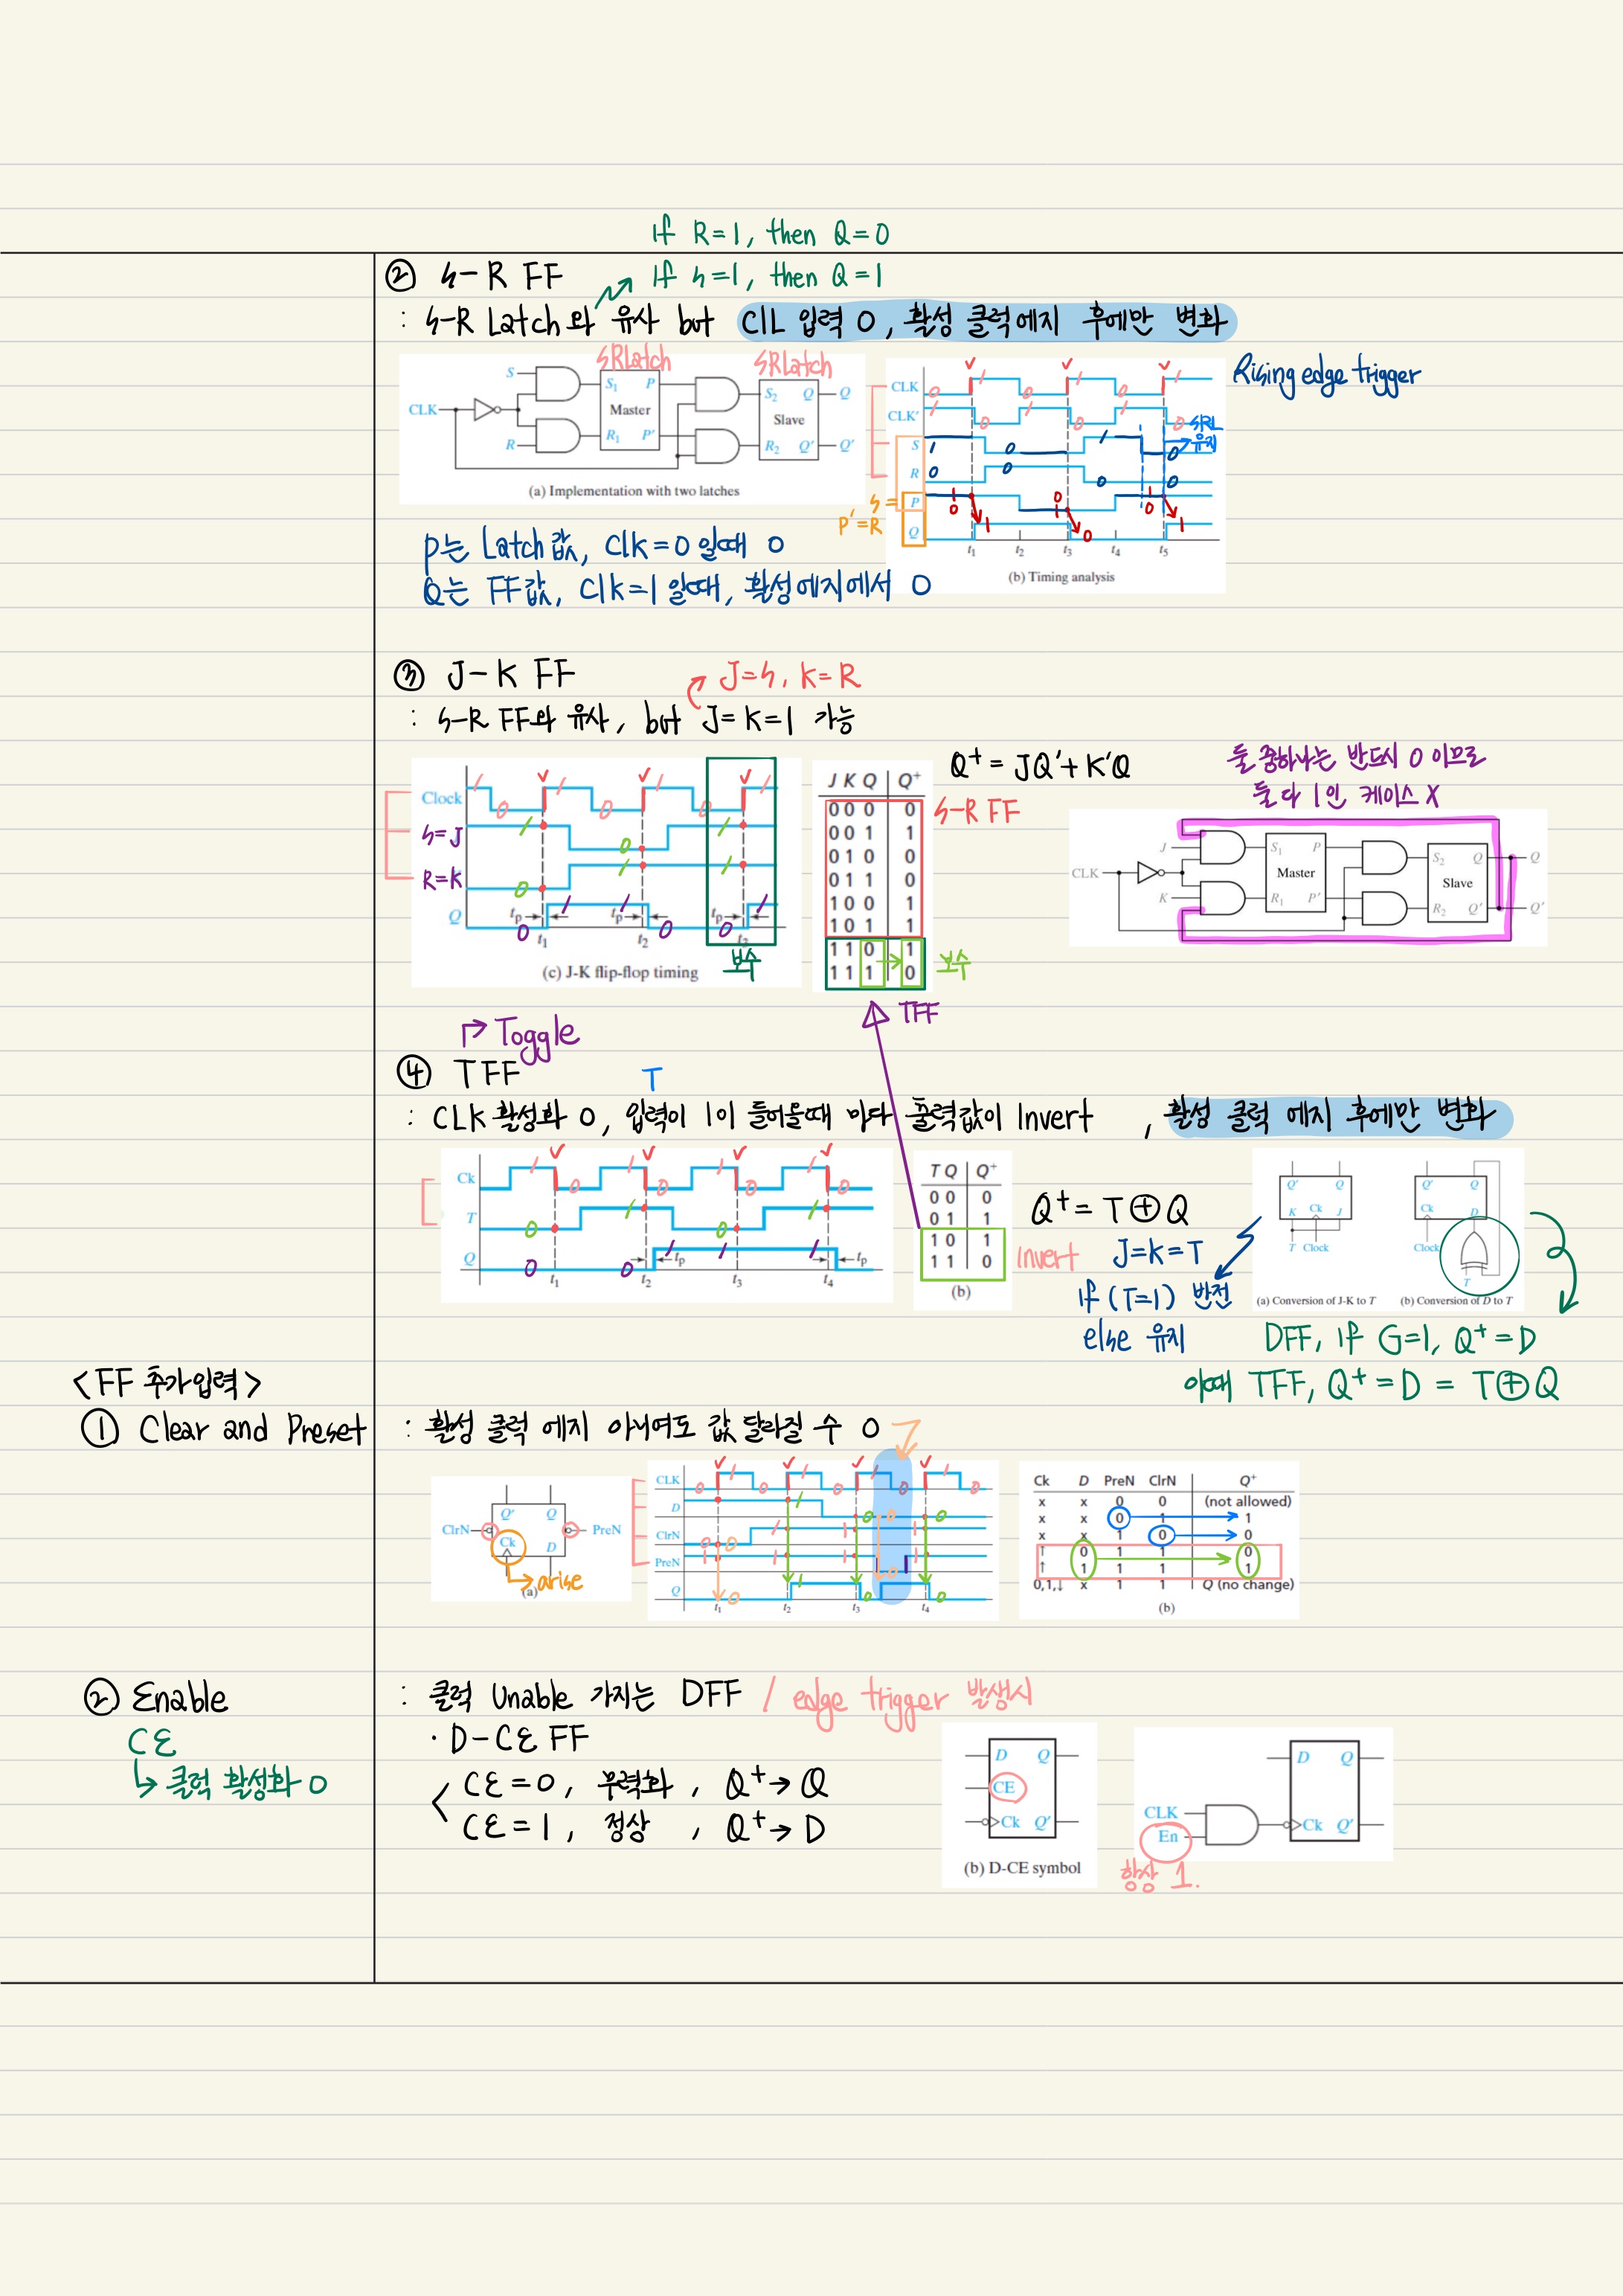 If R=1, then Q=0
② S-R FF
If S=1, then Q=1
: S-R Latch와 유사 but ClL 입력 O, 활성 클럭에지 후에만 변화
SRLatch
SRLatch
Rising edge trigger
S
CLK
R
S1
P
Master
R1
P'
S2
Q
Slave
R2
Q'
Q
Q'
(a) Implementation with two latches
CLK
CLK'
S
R
S = P
P' = R
Q
1 0
0 1
1 0
0 1
1 0
0 1
유지
1 0 1 0
0 0 0 0
t1 t2 t3 t4 t5
(b) Timing analysis
P는 Latch값, Clk=0 일때 O
Q는 FF값, Clk=1 일때, 활성에지에서 O
③ J-K FF
J=S, K=R
: S-R FF와 유사, but J=K=1 가능
Clock
S=J
R=K
Q
tp tp tp
t1 t2 t3
보수
(c) J-K flip-flop timing
J K Q Q+
0 0 0 0
0 0 1 1
0 1 0 0
0 1 1 0
1 0 0 1
1 0 1 1
1 1 0 1
1 1 1 0
S-R FF
보수
TFF
Q+ = JQ' + K'Q
둘 중하나는 반드시 0 이므로
둘 다 1인 케이스 X
J
CLK
K
S1 P
Master
R1 P'
S2 Q
Slave
R2 Q'
Q
Q'
Toggle
④ TFF
T
: CLK 활성화 O, 입력이 1이 들어올때 마다 출력값이 Invert , 활성 클럭 에지 후에만 변화
Ck
T
Q
tp tp
t1 t2 t3 t4
T Q Q+
0 0 0
0 1 1
1 0 1
1 1 0
(b)
Invert
Q+ = T⊕Q
J=K=T
If (T=1) 반전
else 유지
Q' Q
K Ck J
T Clock
(a) Conversion of J-K to T
Q' Q
Ck D
Clock
T
(b) Conversion of D to T
DFF, If G=1, Q+ = D
이때 TFF, Q+ = D = T⊕Q
<FF 추가입력>
① Clear and Preset : 활성 클럭 에지 아니여도 값 달라질 수 O
Q' Q
ClrN PreN
Ck D
arise
(a)
CLK
D
ClrN
PreN
Q
t1 t2 t3 t4
Ck D PreN ClrN Q+
x x 0 0 (not allowed)
x x 0 1 1
x x 1 0 0
↑ 0 1 1 0
↑ 1 1 1 1
0,1,↓ x 1 1 Q (no change)
(b)
② Enable : 클럭 Unable 가지는 DFF / edge trigger 발생시
CE
↳ 클럭 활성화 O
· D-CE FF
CE=0, 무력화, Q+→Q
CE=1, 정상, Q+→D
D Q
CE
Ck Q'
(b) D-CE symbol
D Q
CLK
En
Ck Q'
항상 1.